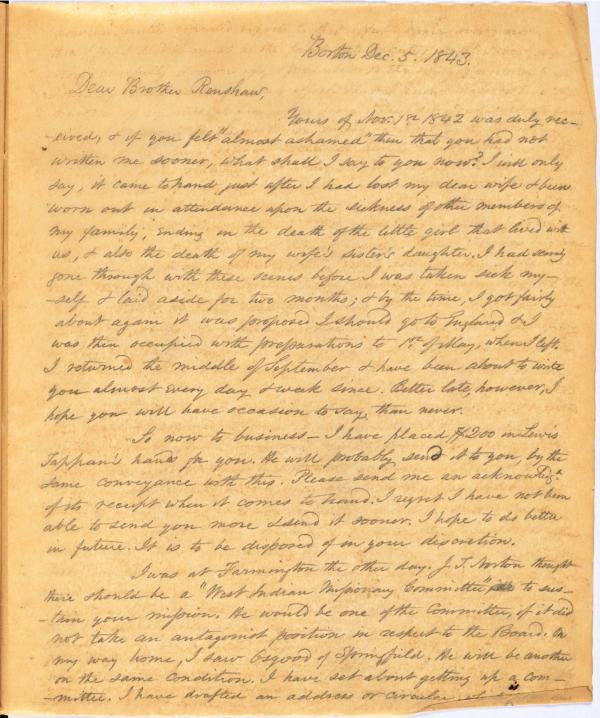 Boston Dec. 5. 1843.
Dear Brother Renshaw,
Yours of Nov. 1st 1842 was duly rec-
-eived, & if you felt "almost ashamed" then that you had not
written me sooner, what shall I say to you now? I will only
say, it came to hand just after I had lost my dear wife & been
worn out in attendance upon the sickness of other members of
my family, ending in the death of the little girl that lived with
us, & also the death of my wife's sister's daughter. I had scarcely
gone through with these scenes before I was taken sick my-
-self & laid aside for two months; & by the time, I got fairly
about again it was proposed I should go to England & I
was then occupied with preparations to 1st of May, when I left.
I returned the middle of September & have been about to write
you almost every day & week since. Better late, however, I
hope you will have occasion to say, than never.
So now to business – I have placed $200 in Lewis
Tappan's hands for you. He will probably send it to you, by the
same conveyance with this. Please send me an acknowlg.
of its receipt when it comes to hand. I regret I have not been
able to send you more & send it sooner. I hope to do better
in future. It is to be disposed of in your discretion.
I was at Farmington the other day. J. T. Norton thought
there should be a "West Indian Missionary Committee" to sus-
tain your mission. He would be one of the Committee, if it did
not take an antagonist position in respect to the Board. On
my way home, I saw Osgood of Springfield. He will be another
on the same condition. I have set about getting up a com-
-mittee. I have drafted an address or circular